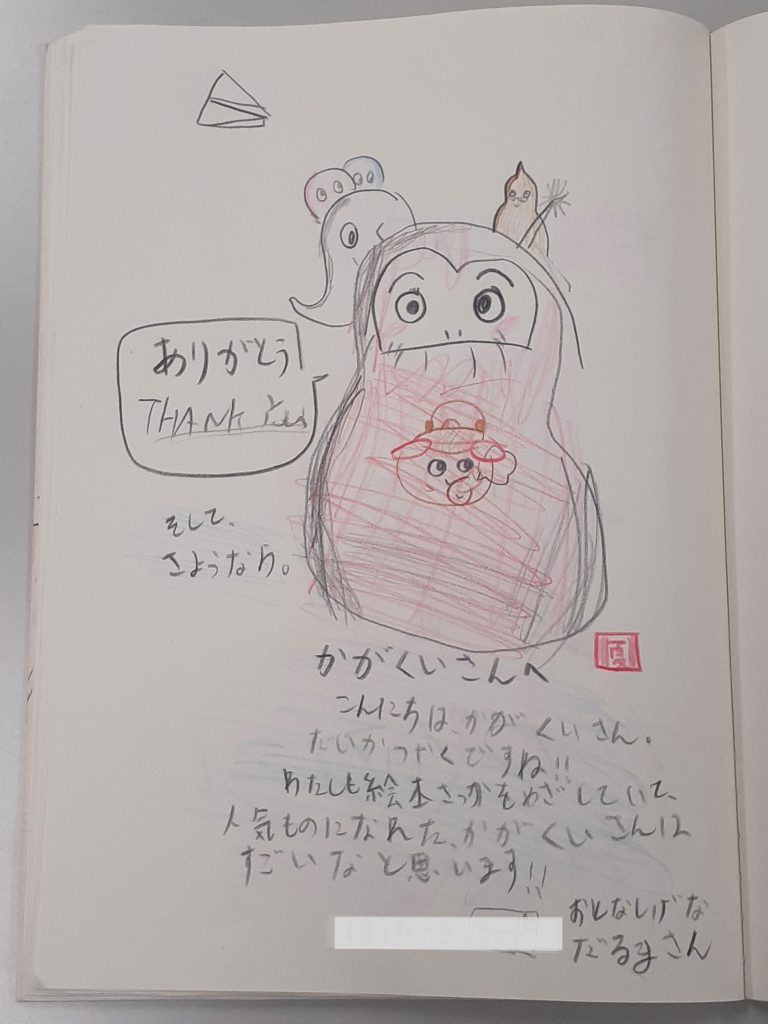 ありがとう
THANK you
そして、
さようなら。
かがくいさんへ
こんにちは、かがくいさん。
だいかつやくですね!!
わたしも絵本さっかをめざしていて、
人気ものになれた、かがくいさんは
すごいなと思います!!
おとなしげな
だるまさん